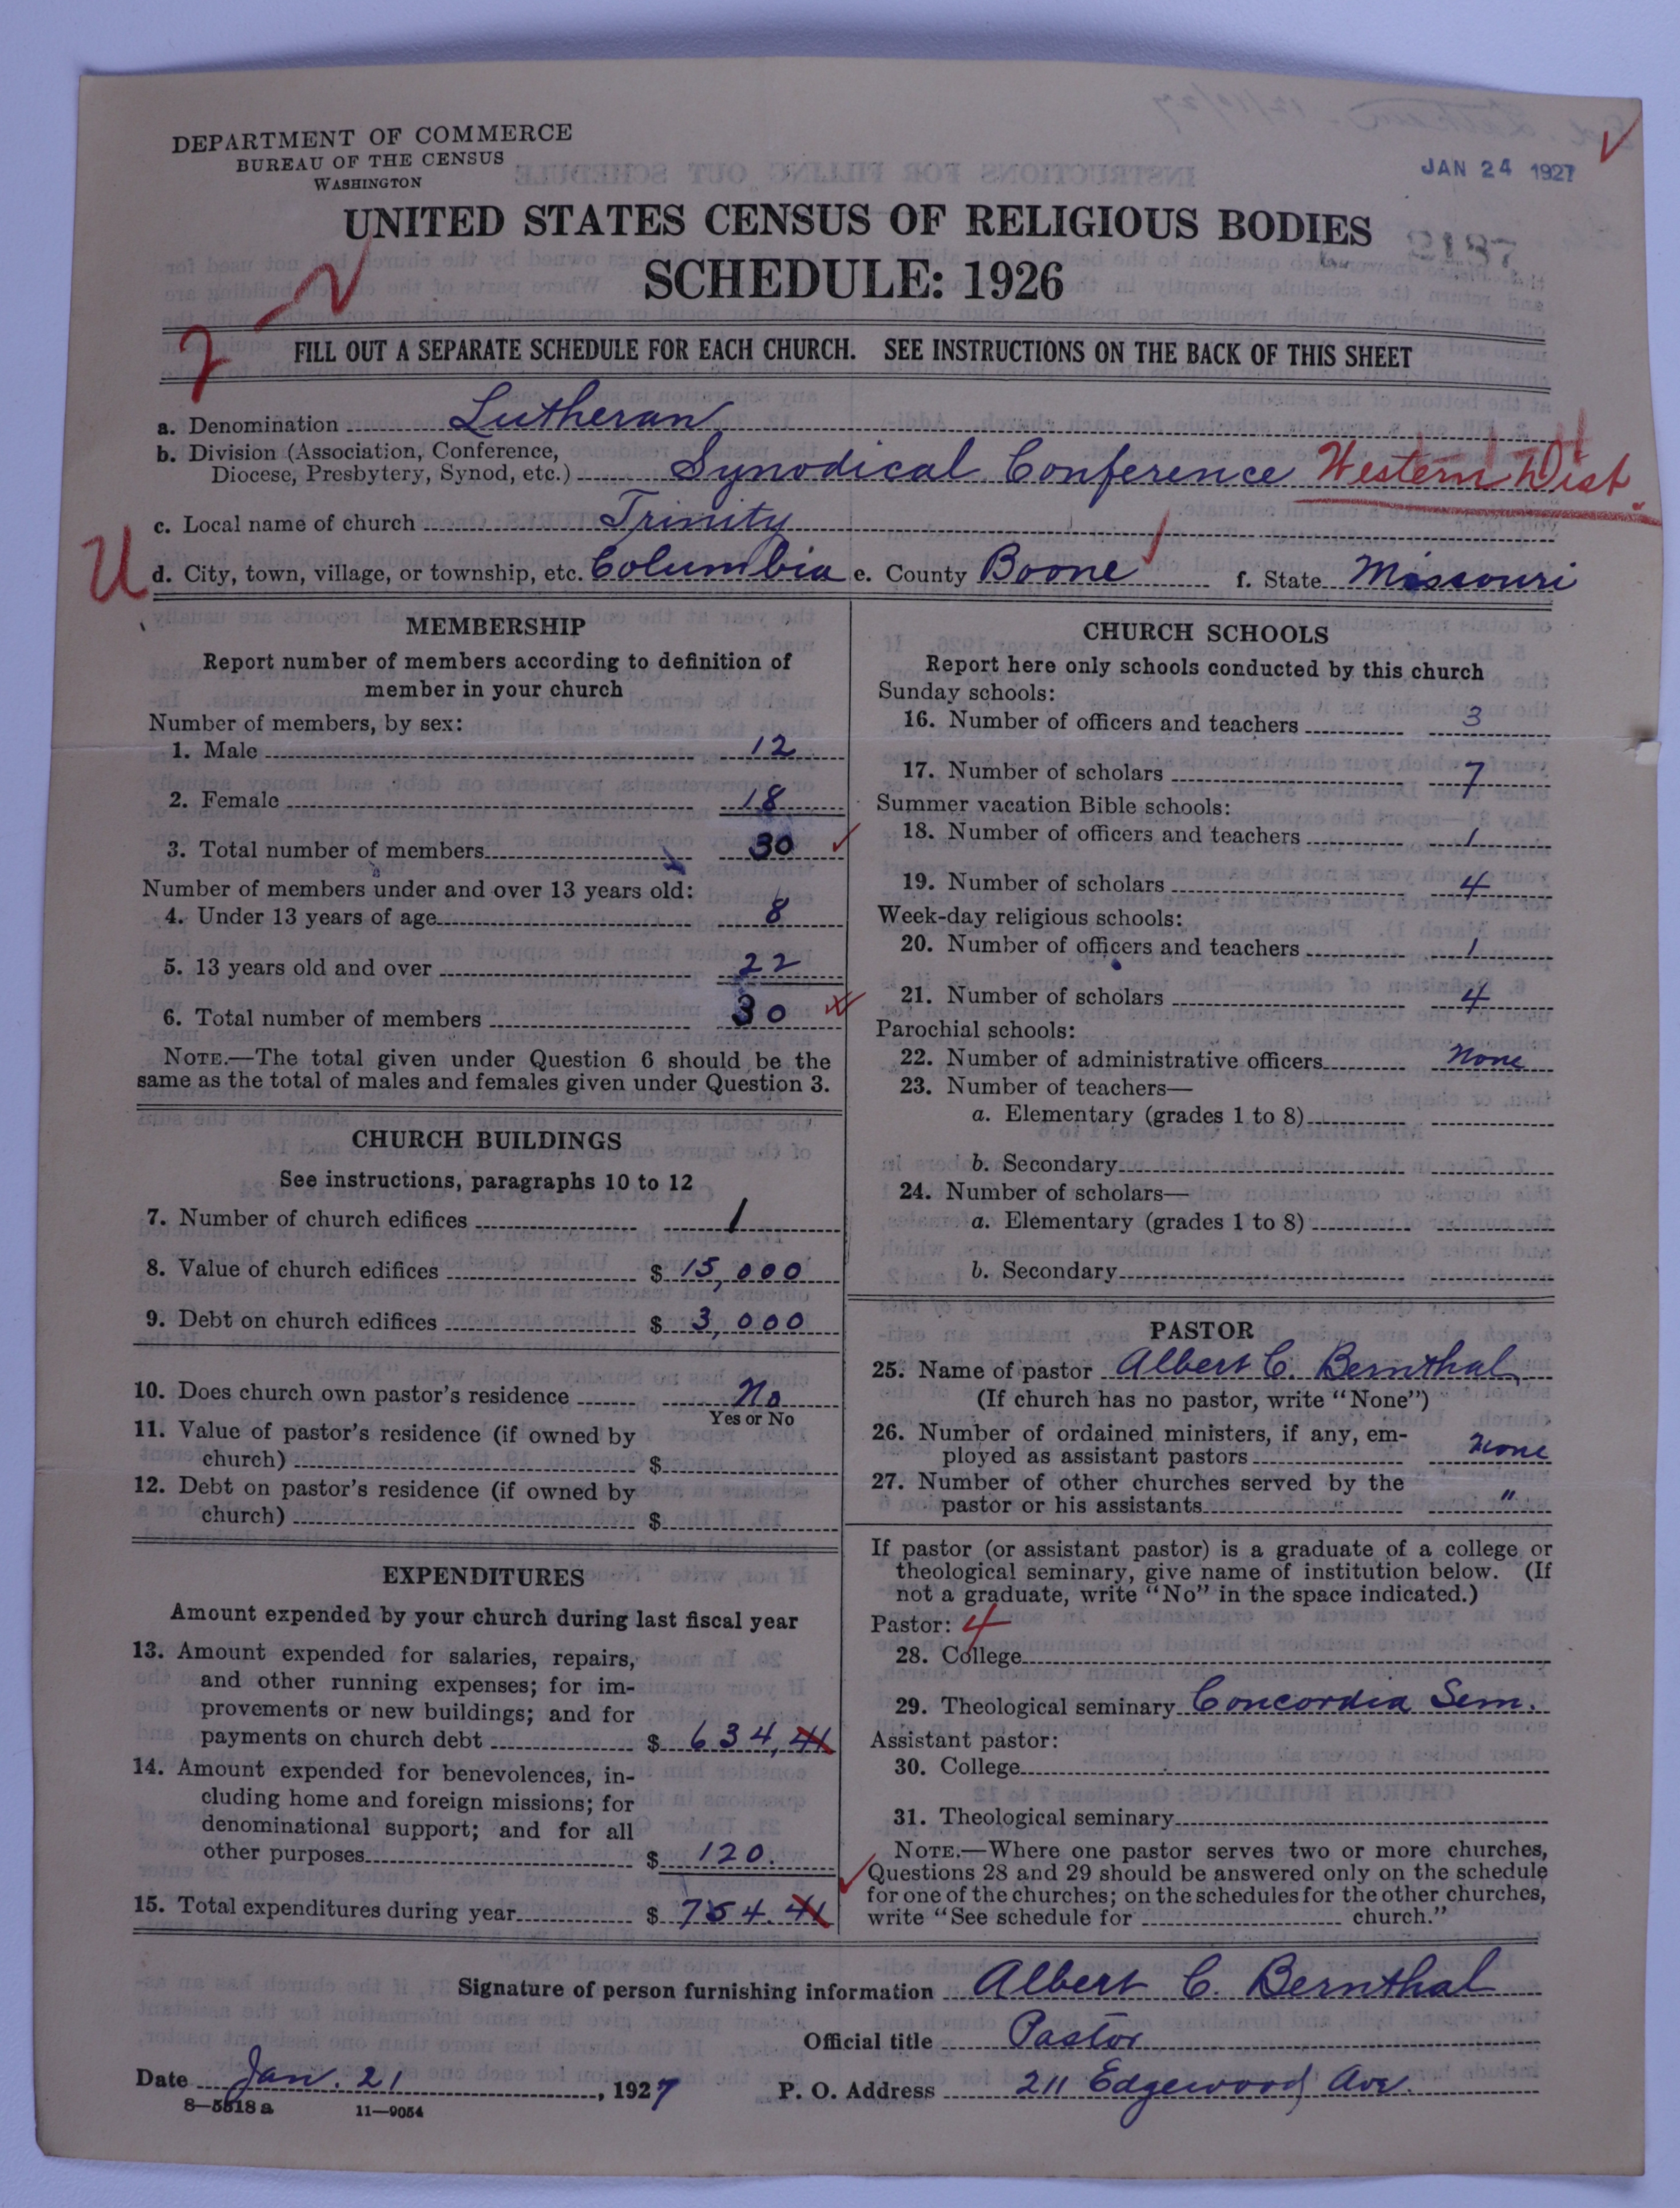 DEPARTMENT OF COMMERCE
BUREAU OF THE CENSUS
WASHINGTON
JAN 24 1927
UNITED STATES CENSUS OF RELIGIOUS BODIES
SCHEDULE: 1926
2187
FILL OUT A SEPARATE SCHEDULE FOR EACH CHURCH. SEE INSTRUCTIONS ON THE BACK OF THIS SHEET
a. Denomination Lutheran
b. Division (Association, Conference,
Diocese, Presbytery, Synod, etc.) Synodical Conference Western Dist.
c. Local name of church Trinity
U d. City, town, village, or township, etc. Columbia e. County Boone f. State Missouri
MEMBERSHIP
Report number of members according to definition of
member in your church
Number of members, by sex:
1. Male 12
2. Female 18
3. Total number of members 30
Number of members under and over 13 years old:
4. Under 13 years of age 8
5. 13 years old and over 22
6. Total number of members 30
NOTE.—The total given under Question 6 should be the
same as the total of males and females given under Question 3.
CHURCH BUILDINGS
See instructions, paragraphs 10 to 12
7. Number of church edifices 1
8. Value of church edifices $ 15,000
9. Debt on church edifices $ 3,000
10. Does church own pastor's residence No
Yes or No
11. Value of pastor's residence (if owned by
church) $
12. Debt on pastor's residence (if owned by
church) $
EXPENDITURES
Amount expended by your church during last fiscal year
13. Amount expended for salaries, repairs,
and other running expenses; for im-
provements or new buildings; and for
payments on church debt $ 634,41
14. Amount expended for benevolences, in-
cluding home and foreign missions; for
denominational support; and for all
other purposes $ 120.
15. Total expenditures during year $ 754.41
CHURCH SCHOOLS
Report here only schools conducted by this church
Sunday schools:
16. Number of officers and teachers 3
17. Number of scholars 7
Summer vacation Bible schools:
18. Number of officers and teachers 1
19. Number of scholars 4
Week-day religious schools:
20. Number of officers and teachers 1
21. Number of scholars 4
Parochial schools:
22. Number of administrative officers None
23. Number of teachers—
a. Elementary (grades 1 to 8)
b. Secondary
24. Number of scholars—
a. Elementary (grades 1 to 8)
b. Secondary
PASTOR
25. Name of pastor Albert C. Bernthal
(If church has no pastor, write "None")
26. Number of ordained ministers, if any, em-
ployed as assistant pastors None
27. Number of other churches served by the
pastor or his assistants "
If pastor (or assistant pastor) is a graduate of a college or
theological seminary, give name of institution below. (If
not a graduate, write "No" in the space indicated.)
Pastor: 4
28. College
29. Theological seminary Concordia Sem.
Assistant pastor:
30. College
31. Theological seminary
NOTE.—Where one pastor serves two or more churches,
Questions 28 and 29 should be answered only on the schedule
for one of the churches; on the schedules for the other churches,
write "See schedule for church."
Signature of person furnishing information Albert C. Bernthal
Official title Pastor
Date Jan. 21, 1927 P. O. Address 211 Edgewood Ave.
8—5518 a 11—9054